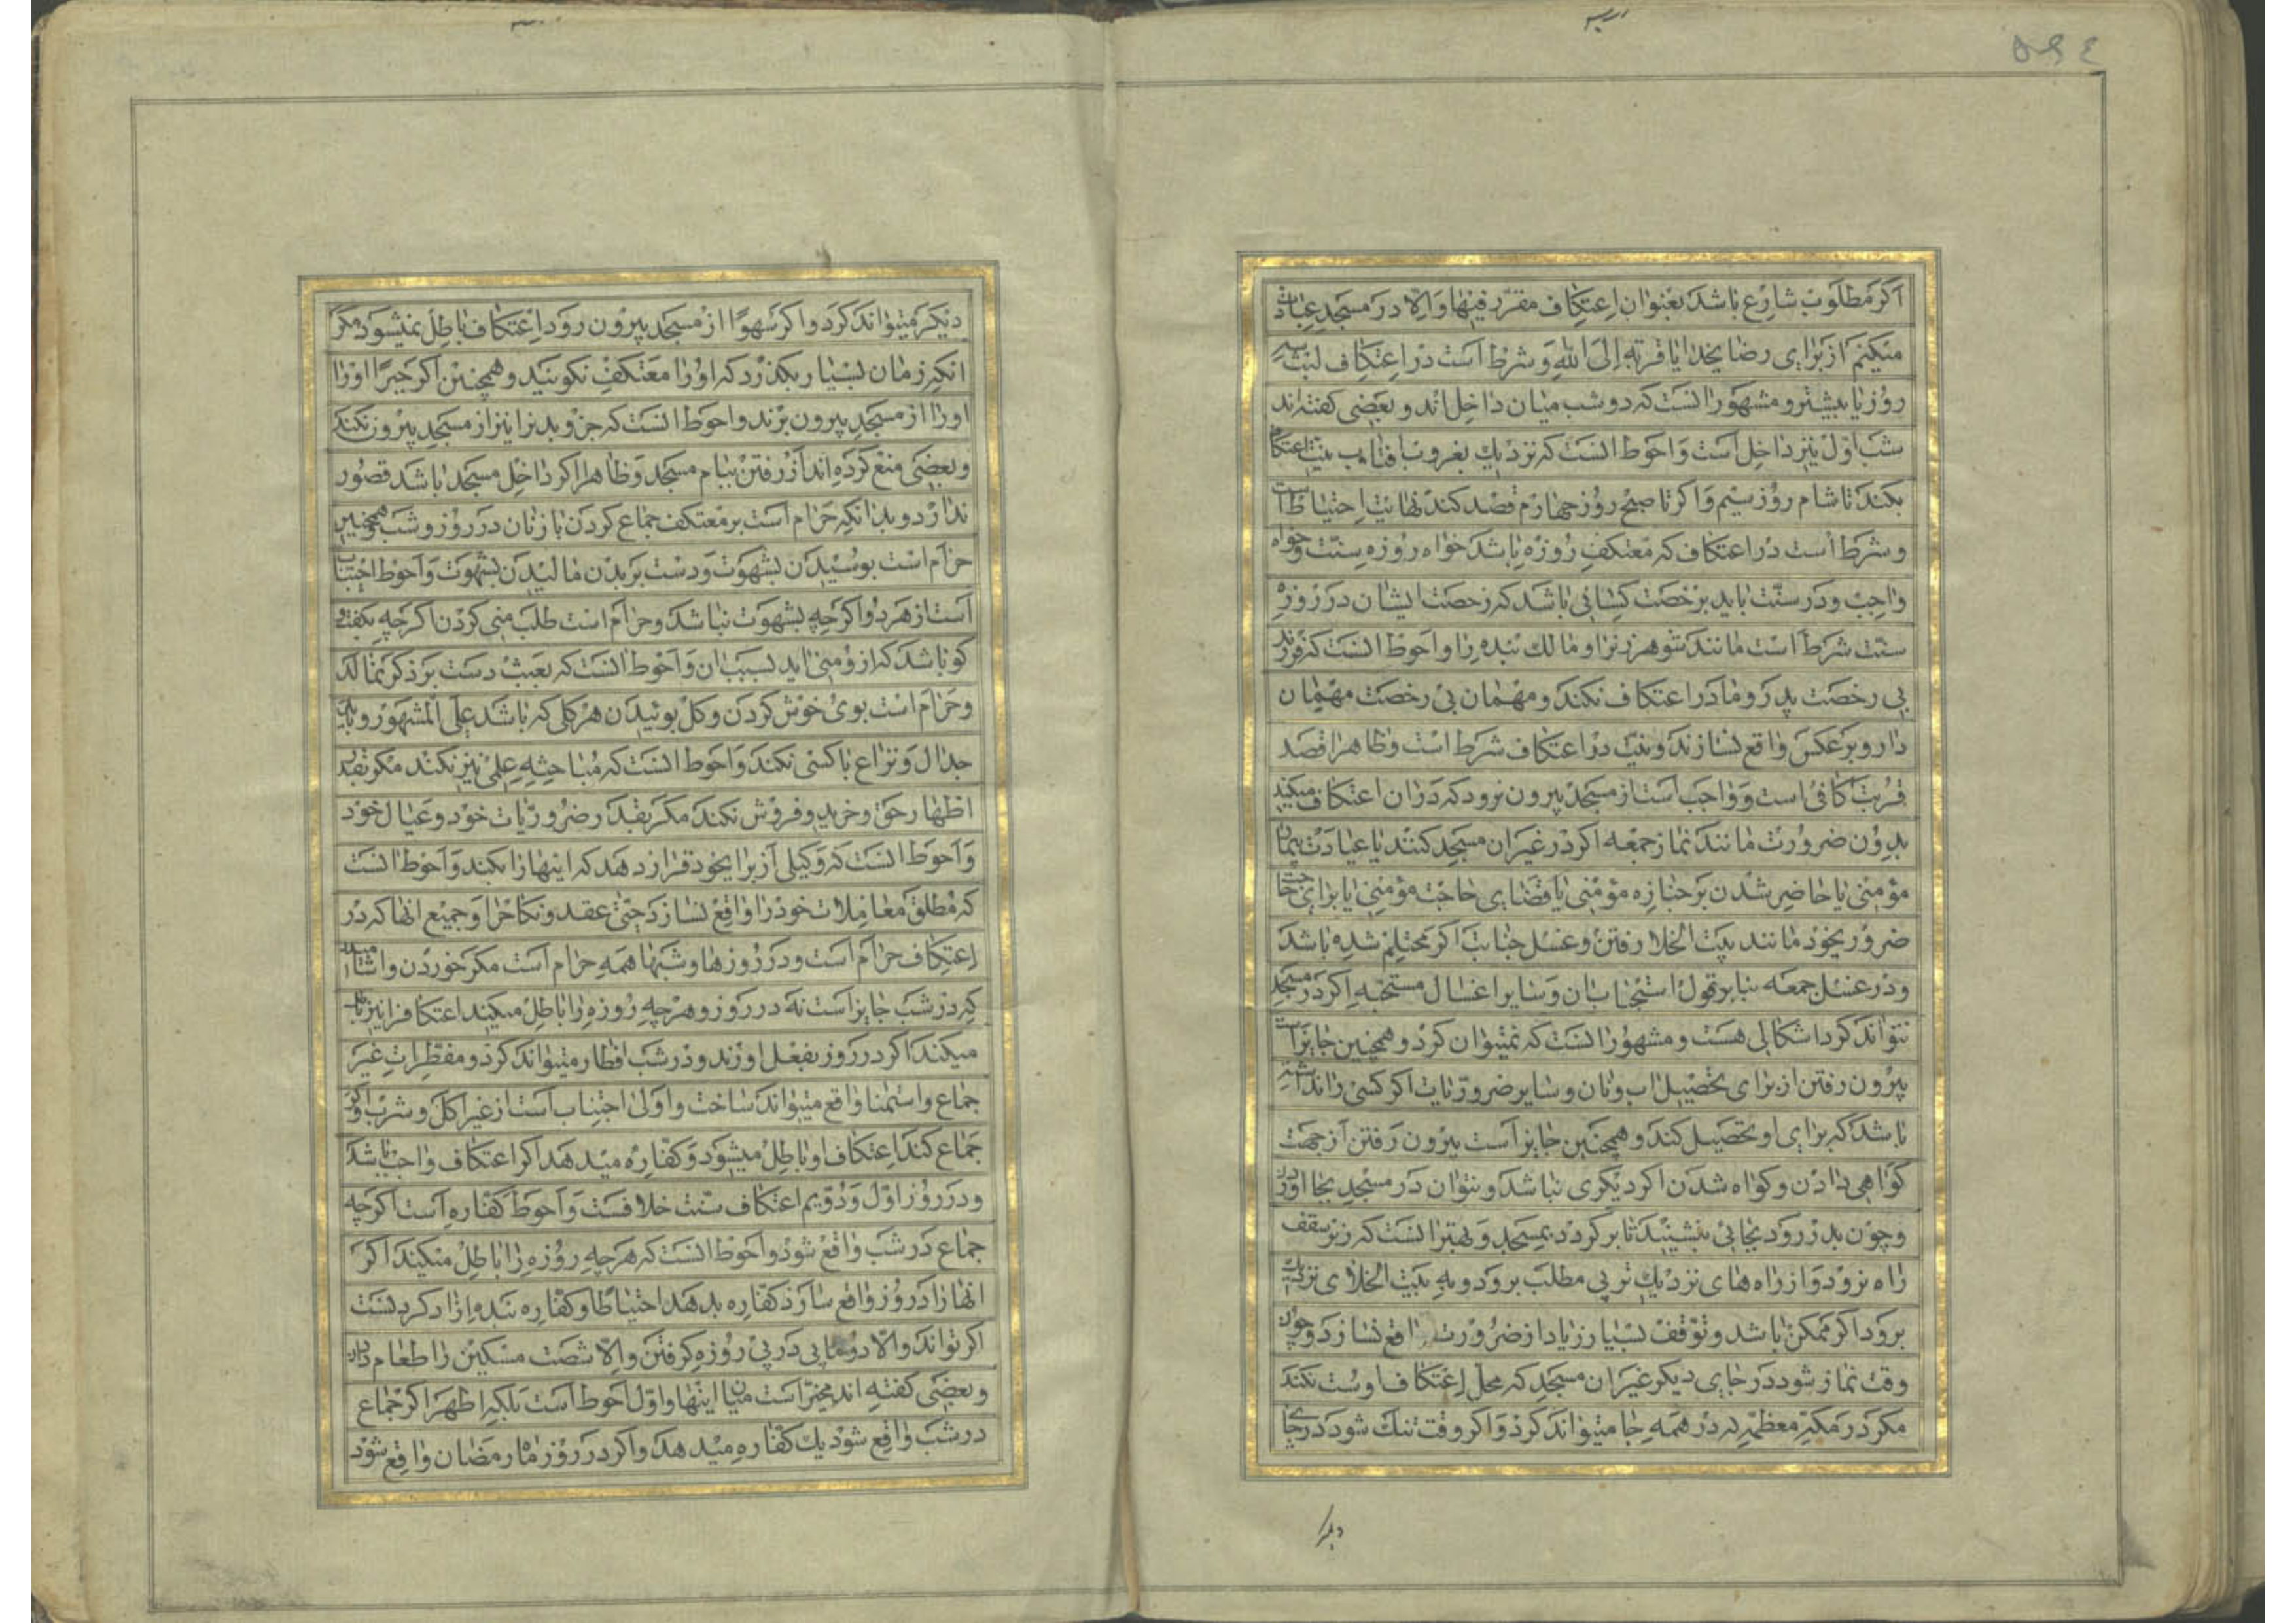 اكر مطلوب شارع باشد بعنوان اعتكاف مقرر فيها والا در مسجد عبادت
ميكنم از براي رضا يخدا يا قربة الى الله و شرط است در اعتكاف لبث سه
روز يا بيشتر و مشهور انست كه دو شب ميان داخل اند و بعضى كفته اند
شب اول نيز داخل است و احوط انست كه نزديك بغروب افتاب نيت اعتكاف
بكند تا شام روز سيم و اكر تا صبح روز چهارم قصد كند نهايت احتياط است
و شرط است در اعتكاف كه معتكف روزه باشد خواه روزه سنت و خواه
واجب و در سنت بايد برخصت كسانى باشد كه رخصت ايشان در روزه
سنت شرط است مانند شوهر زنرا و مالك بنده را و احوط انست كه فرزند
بي رخصت پدر و مادر اعتكاف نكند و مهمان بى رخصت مهمان
دار و بر عكس واقع نسازند و نيت در اعتكاف شرط است و ظاهرا قصد
قربت كافى است و واجب است از مسجد بيرون نرود كه در ان اعتكاف ميكند
بدون ضرورت مانند نماز جمعه اكر در غير ان مسجد كنند يا عيادت بيمار
مؤمنى يا حاضر شدن بر جنازه مؤمنى يا قضاي حاجت مؤمنى يا براي حاجت
ضرور يخود مانند بيت الخلا رفتن و غسل جنابت اكر محتلم شده باشد
و در غسل جمعه بنا بر قول استحباب ان و ساير اغسال مستحبه اكر در مسجد
نتواند كرد اشكالى هست و مشهور انست كه نميتوان كرد و همچنين جايز است
بيرون رفتن از براى تحصيل اب و نان و ساير ضروريات اكر كسى را نداشته
باشد كه براي او تحصيل كند و همچنين جايز است بيرون رفتن از جهت
كواهى دادن و كواه شدن اكر ديكرى نباشد و نتوان در مسجد بجا اورد
و چون بدر رود بجائى ننشيند تا بر كردد بمسجد و بهتر انست كه زير سقف
راه نرود و از راه هاى نزديك تر پى مطلب برود و به بيت الخلاى نزديك
برود اكر ممكن باشد و توقف بسيار زياد از ضرورت واقع نسازد و چون
وقت نماز شود در جاي ديكر غير ان مسجد كه محل اعتكاف اوست نكند
مكر در مكه معظمه كه در همه جا ميتواند كرد و اكر وقت تنك شود در جاى
ديكر
ديكر ميتواند كرد و اكر سهوًا از مسجد بيرون رود اعتكاف باطل نميشود مكر
انكه زمان بسيار بكذرد كه او را معتكف نكويند و همچنين اكر جبرًا او را
او را از مسجد بيرون برند و احوط انست كه جزو بدنرا نيز از مسجد بيرون نكند
و بعضى منع كرده اند از رفتن ببام مسجد و ظاهرا اكر داخل مسجد باشد قصور
ندارد و بدانكه حرام است بر معتكف جماع كردن با زنان در روز و شب و همچنين
حرام است بوسيدن بشهوت و دست بر بدن ماليدن بشهوت و احوط اجتناب
است از هر دو اكر چه بشهوت نباشد و حرام است طلب منى كردن اكر چه بكفت و
كو باشد كه از و منى ايد بسبب ان و احوط انست كه بعبث دست بر ذكر نمالد
و حرام است بوى خوش كردن و كل بوئيدن هر كلى كه باشد على المشهور و بايد
جدال و نزاع با كسى نكند و احوط انست كه مباحثه علمى نيز نكند مكر بقدر
اظهار حق و خريد و فروش نكند مكر بقدر ضروريات خود و عيال خود
و احوط انست كه وكيلى از برا يخود قرار دهد كه اينها را بكند و احوط انست
كه مطلق معاملات خود را واقع نسازد حتى عقد و نكاحرا و جميع انها كه در
اعتكاف حرام است و در روزها و شبها همه حرام است مكر خوردن و اشاميدن
كه در شب جايز است نه در روز و هر چه روزه را باطل ميكند اعتكافرا نيز باطل
ميكند اكر در روز بفعل اورند و در شب افطار ميتواند كرد و مفطرات غير
جماع و استمنا واقع ميتواند ساخت و اولى اجتناب است از غير اكل و شرب و اكر
جماع كند اعتكاف او باطل ميشود و كفاره ميدهد اكر اعتكاف واجب باشد
و در روز اول و دويم اعتكاف سنت خلافست و احوط كفاره است اكر چه
جماع در شب واقع شود و احوط انست كه هر چه روزه را باطل ميكند اكر
انها را در روز واقع سازد كفاره بدهد احتياطا و كفاره بنده ازاد كردنست
اكر تواند و الا دو ماه پى در پى روزه كرفتن و الا شصت مسكين را طعام دادن
و بعضى كفته اند مخير است ميان اينها و اول احوط است بلكه اظهر اكر جماع
در شب واقع شود يك كفاره ميدهد و اكر در روز ماه رمضان واقع شود